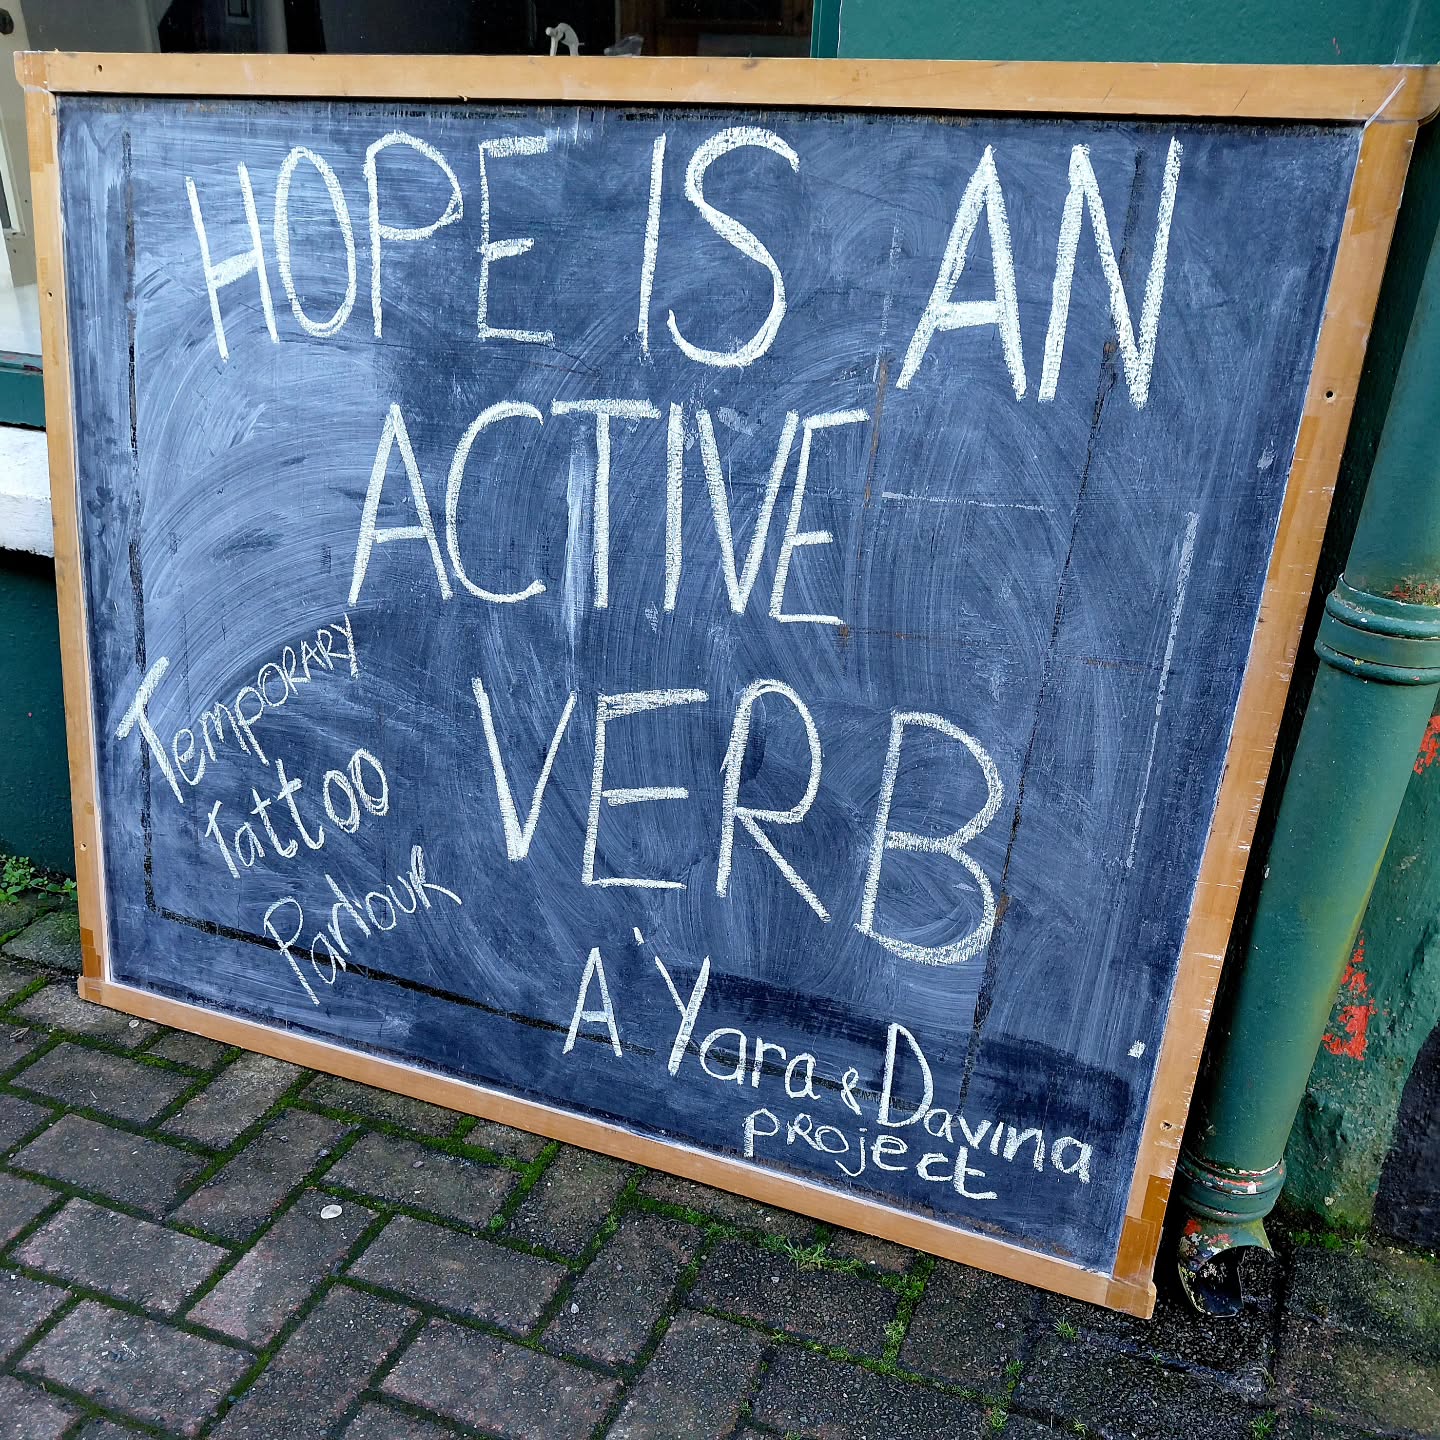 HOPE IS AN
ACTIVE
VERB
Temporary
Tattoo
Parlour
A Yara & Davina
project